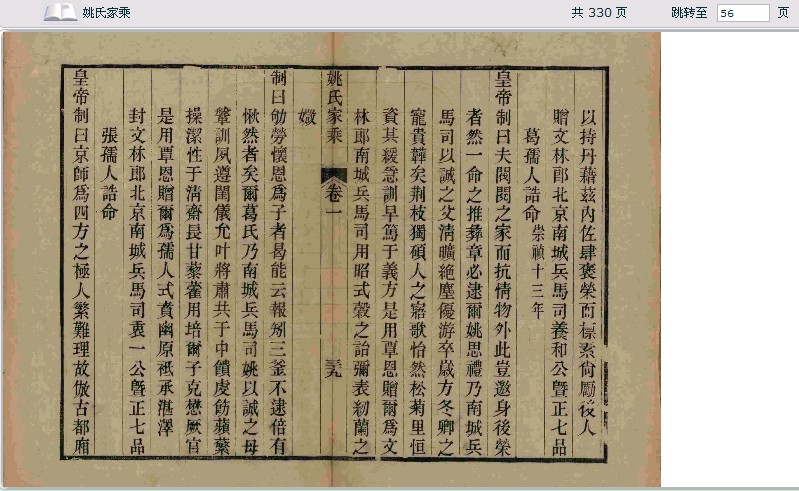 姚氏家乘
共 330 页
跳转至 56 页
以持丹藉茲內佐肆褒榮而標素尙勵後人
贈文林郎北京南城兵馬司養和公曁正七品
葛孺人誥命 崇禎十三年
皇帝制曰夫閥閱之家而抗情物外此豈邀身後榮
者然一命之推彝章必逮爾姚思禮乃南城兵
馬司以誠之父淸曠絶塵優游卒歲方冬卿之
寵貴韡矣荆枝獨碩人之寤歌怡然松菊里恒
資其緩急訓早篤于義方是用覃恩贈爾爲文
林郎南城兵馬司用昭式穀之詒彌表紉蘭之
媺
姚氏家乘
卷一
三九
制曰劬勞懷恩爲子者曷能云報矧三釜不逮倍有
愀然者矣爾葛氏乃南城兵馬司姚以誠之母
鞶訓夙遵閨儀允叶將肅共于中饋虔飭蘋蘩
操潔性于淸齋長甘藜藿用培爾子克懋厥官
是用覃恩贈爾爲孺人式賁幽原祇承湛澤
封文林郎北京南城兵馬司衷一公曁正七品
張孺人誥命
皇帝制曰京師爲四方之極人繁難理故倣古都廂